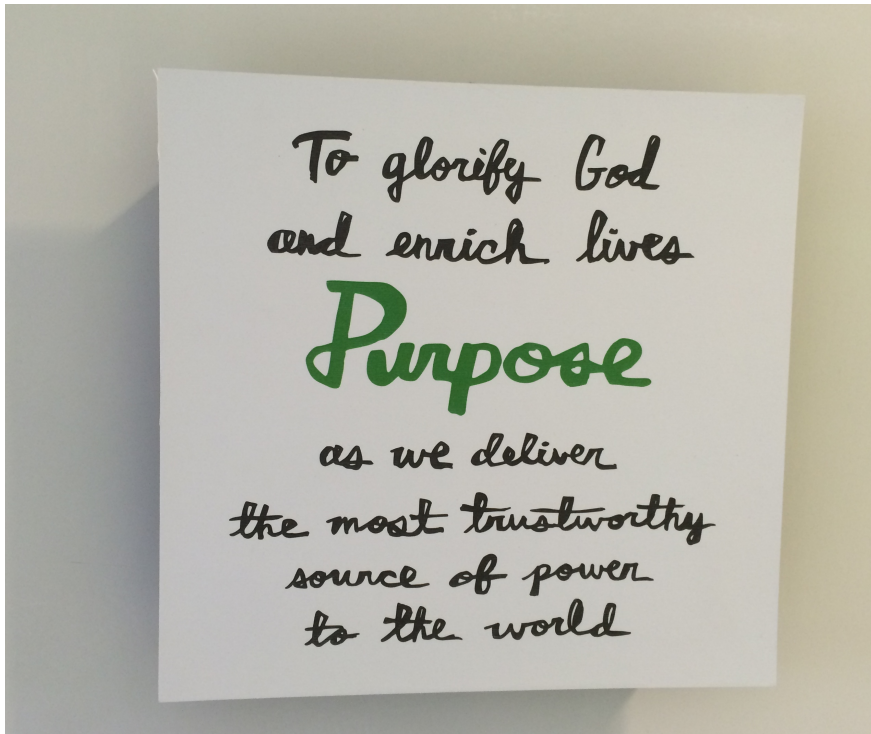 To glorify God
and enrich lives
Purpose
as we deliver
the most trustworthy
source of power
to the world